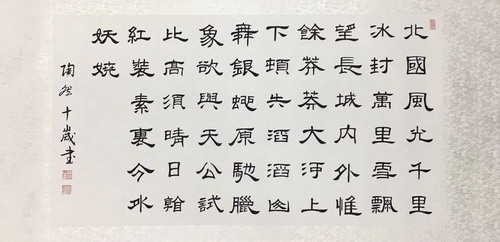 北國風光千里
冰封萬里雪飄
望長城内外惟
餘莽莽大河上
下頓失滔滔山
舞銀蛇原馳臘
象欲與天公試
比高須晴日看
紅裝素裹分外
妖嬈
陶然十歲書